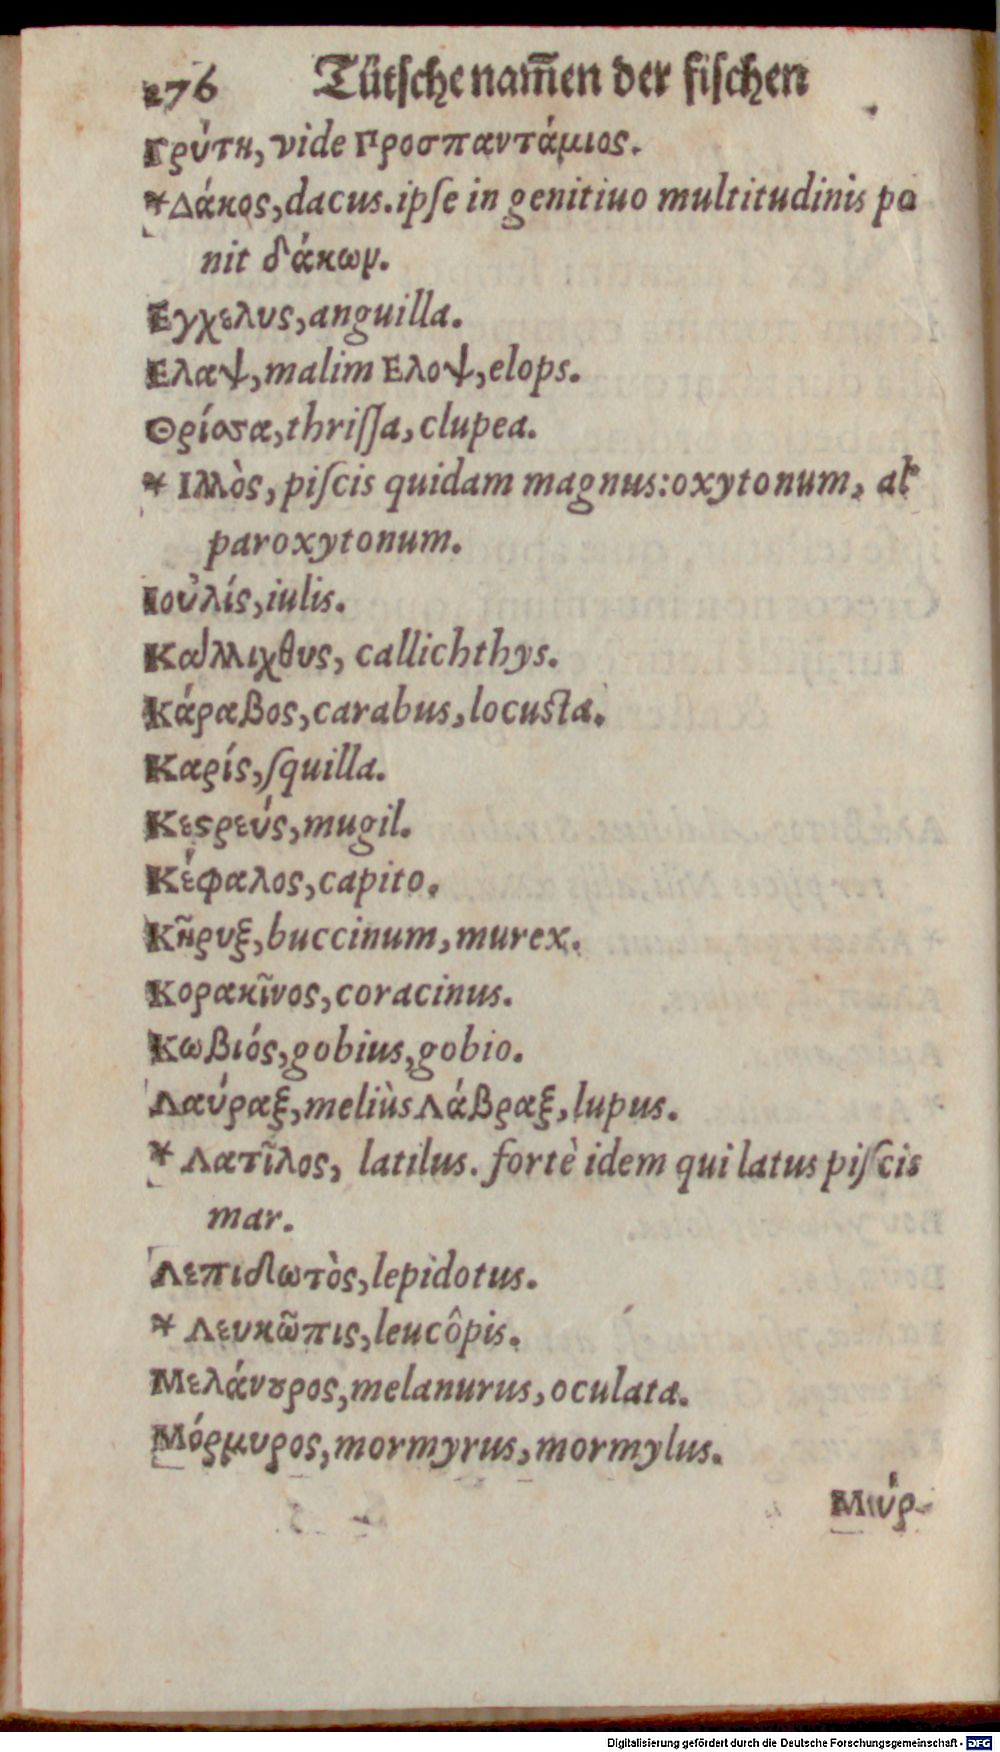 276 Tütsche nam̄en der fischen
Γρύτη, vide Προσπαντάμιος.
*Δάκος, dacus. ipſe in genitiuo multitudinis po
nit δάκων.
Εγχελυς, anguilla.
Ελαψ, malim Ελοψ, elops.
Θρίσσα, thriſſa, clupea.
* Ιλλὸς, piſcis quidam magnus: oxytonum, al'
paroxytonum.
Ιουλίς, iulis.
Κάλλιχθυς, callichthys.
Κάραβος, carabus, locusta.
Καρίς, ſquilla.
Κεςρεύς, mugil.
Κέφαλος, capito.
Κῆρυξ, buccinum, murex.
Κορακῖνος, coracinus.
Κωβιός, gobius, gobio.
Λαύραξ, meliùs Λάβραξ, lupus.
* Λατῖλος, latilus. fortè idem qui latus piſcis
mar.
Λεπιδωτὸς, lepidotus.
* Λευκῶπις, leucôpis.
Μελάνȣρος, melanurus, oculata.
Μόρμυρος, mormyrus, mormylus.
Μύρ-
Digitalisierung gefördert durch die Deutsche Forschungsgemeinschaft - DFG